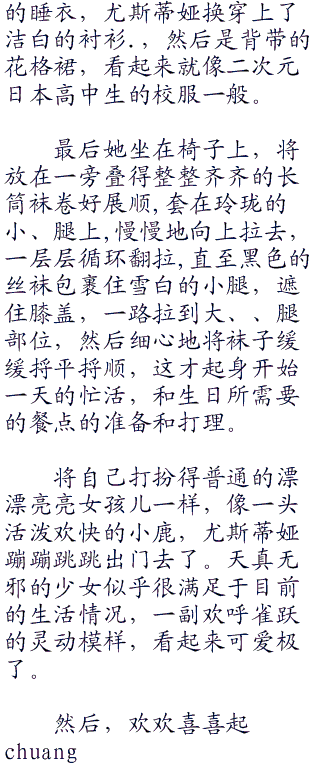 的睡衣，尤斯蒂娅换穿上了
洁白的衬衫.，然后是背带的
花格裙，看起来就像二次元
日本高中生的校服一般。
最后她坐在椅子上，将
放在一旁叠得整整齐齐的长
筒袜卷好展顺,套在玲珑的
小、腿上,慢慢地向上拉去,
一层层循环翻拉,直至黑色的
丝袜包裹住雪白的小腿，遮
住膝盖，一路拉到大、、腿
部位，然后细心地将袜子缓
缓捋平捋顺，这才起身开始
一天的忙活，和生日所需要
的餐点的准备和打理。
将自己打扮得普通的漂
漂亮亮女孩儿一样，像一头
活泼欢快的小鹿，尤斯蒂娅
蹦蹦跳跳出门去了。天真无
邪的少女似乎很满足于目前
的生活情况，一副欢呼雀跃
的灵动模样，看起来可爱极
了。
然后，欢欢喜喜起
chuang